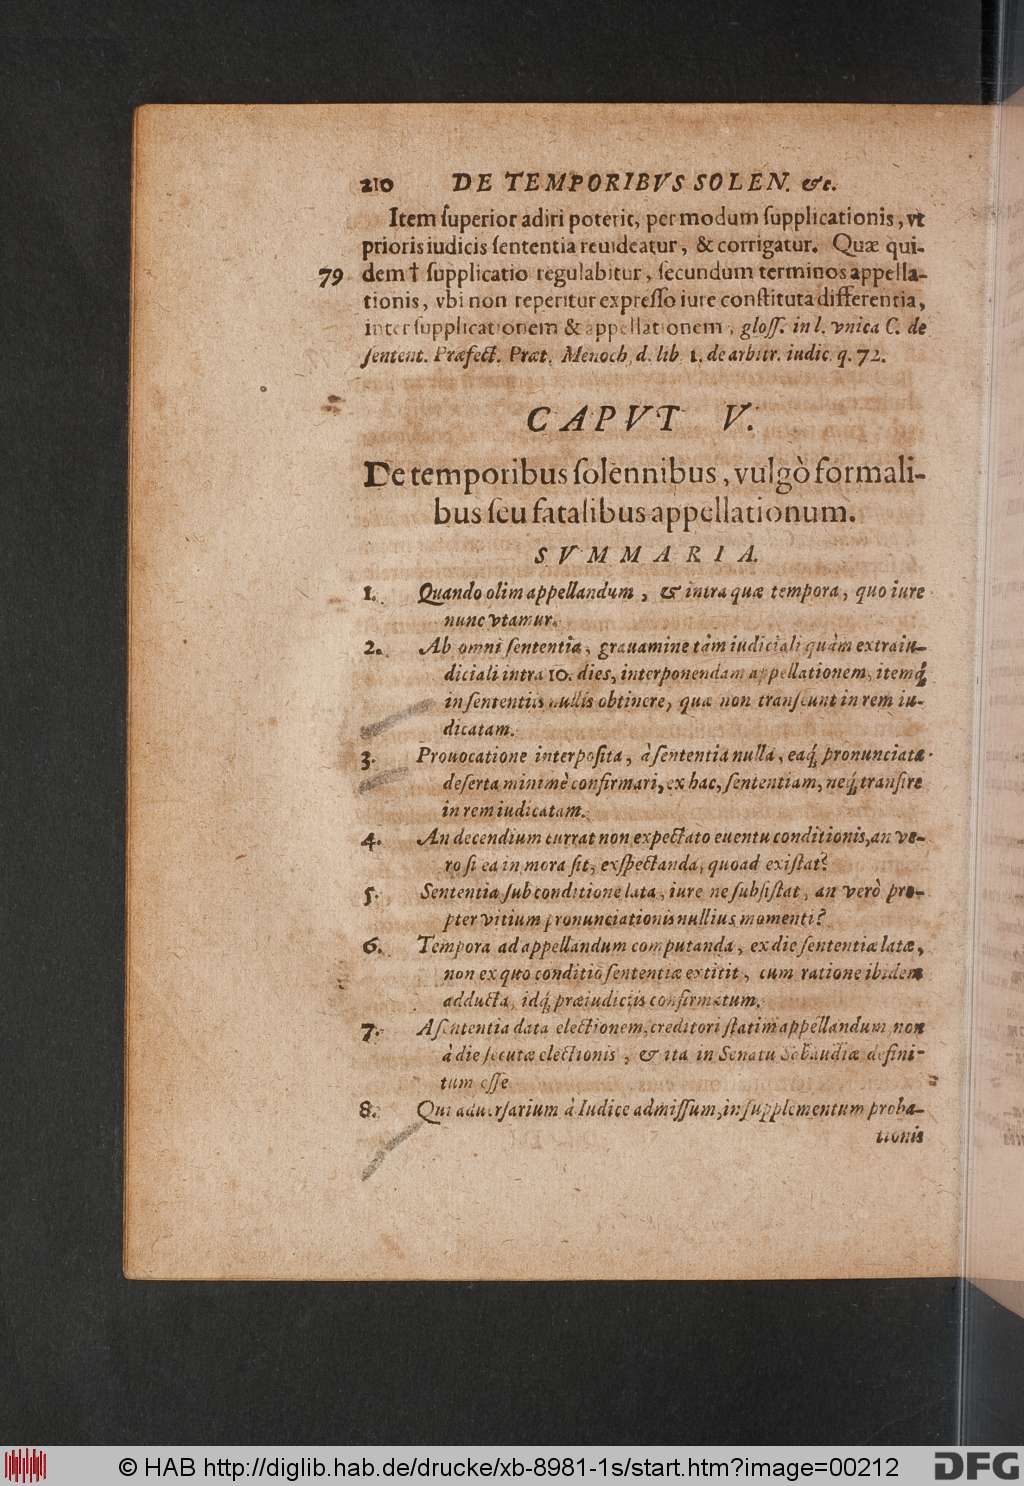 210 DE TEMPORIBVS SOLEN. &c.
Item ſuperior adiri poterit, per modum ſupplicationis, vt
prioris iudicis ſententia reuideatur, & corrigatur. Quæ qui-
79 dem † ſupplicatio regulabitur, ſecundum terminos appella-
tionis, vbi non reperitur expreſſo iure conſtituta differentia,
inter ſupplicationem & appellationem, gloſſ. in l. vnica C. de
ſentent. Præfect. Præt. Menoch. d. lib. 1. de arbitr. iudic. q. 72.
CAPVT V.
De temporibus ſolennibus, vulgò formali-
bus ſeu fatalibus appellationum.
SVMMARIA.
1. Quando olim appellandum, & intra quæ tempora, quo iure
nunc vtamur.
2. Ab omni ſententia, grauamine tàm iudiciali quàm extraiu-
diciali intra 10. dies, interponendam appellationem, itemq́
in ſententiis nullis obtinere, quæ non tranſeunt in rem iu-
dicatam.
3. Prouocatione interpoſita, à ſententia nulla, eaq́ pronunciata
deſerta minimè confirmari, ex hac, ſententiam, neq́ tranſire
in rem iudicatam.
4. An decendium currat non expectato euentu conditionis, an ve-
ro ſi ea in mora ſit, exſpectanda, quoad exiſtat?
5. Sententia ſub conditione lata, iure ne ſubſiſtat, an verò pro-
pter vitium pronunciationis nullius momenti?
6. Tempora ad appellandum computanda, ex die ſententiæ latæ,
non ex quo conditio ſententiæ extitit, cum ratione ibidem
adducta, idq́ præiudiciis confirmatum.
7. A ſententia data electionem, creditori ſtatim appellandum non
à die ſecutæ electionis, & ita in Senatu Sabaudiæ defini-
tum eſſe
8. Qui aduerſarium à Iudice admiſſum, in ſupplementum proba-
tionis
© HAB http://diglib.hab.de/drucke/xb-8981-1s/start.htm?image=00212
DFG